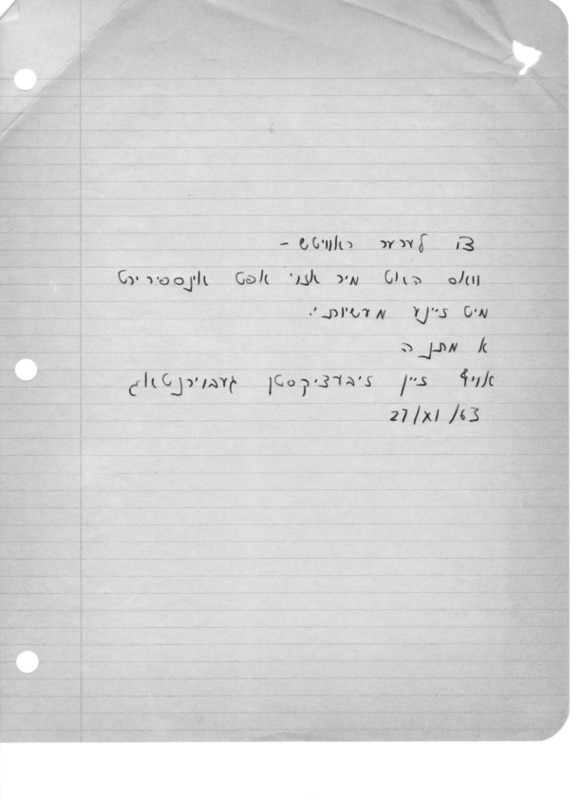 צו לערער ראוויטש –
וואס האט מיר אזוי אפט אינספירירט
מיט זיינע מעשיות.
א מתנה
אויף זיין זיבעציקסטן געבוירנטאג
27/XI/63